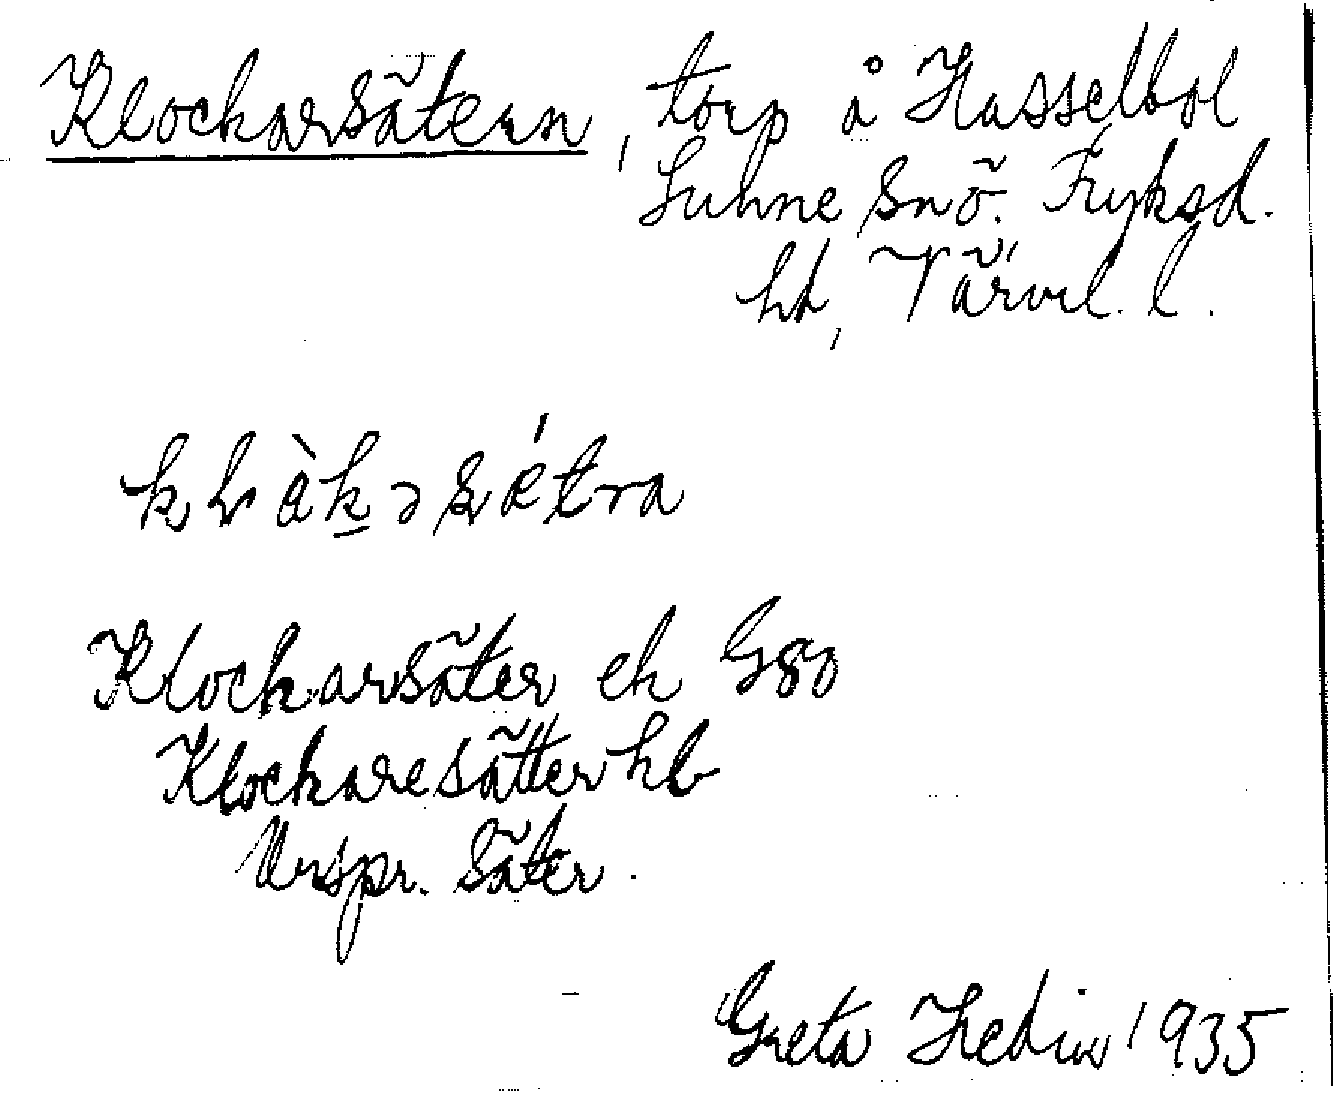 Klockarsätern, torp å Hasselbol
Sunne snö. Fryksd.
hd, Värml. l.
klàkəsǽtra
Klockarsäter ek Gso
Klockaresätter hb
Urspr. säter.
Greta Hedin 1935